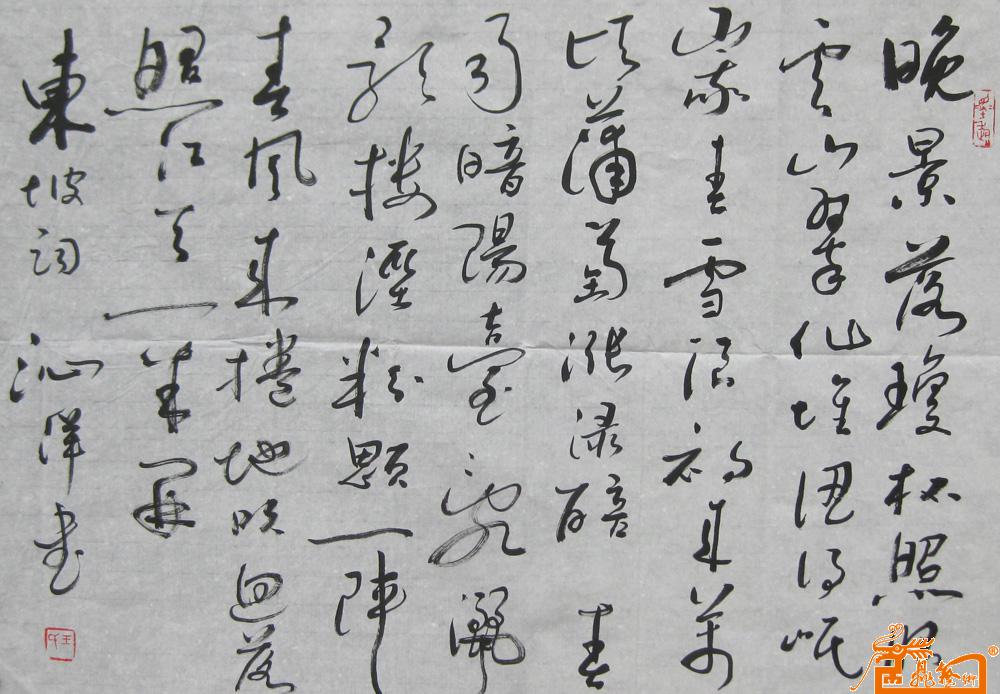 晚景落瓊杯照眼
雲山翠作堆認得岷
峩春雪浪初來萬
頃蒲萄漲渌醅春
雨暗陽臺亂灑
歌樓溼粉顋一陣
春風來捲地吹迴落
照江天一半開
東坡詞 沁洋書